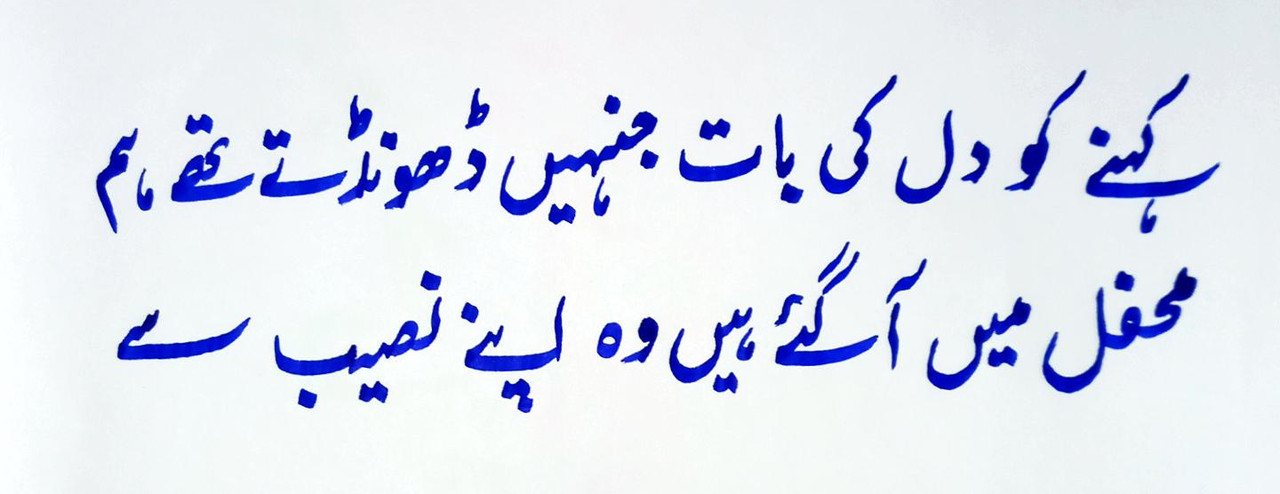 کہنے کو دل کی بات جنہیں ڈھونڈتے تھے ہم
محفل میں آ گئے ہیں وہ اپنے نصیب سے